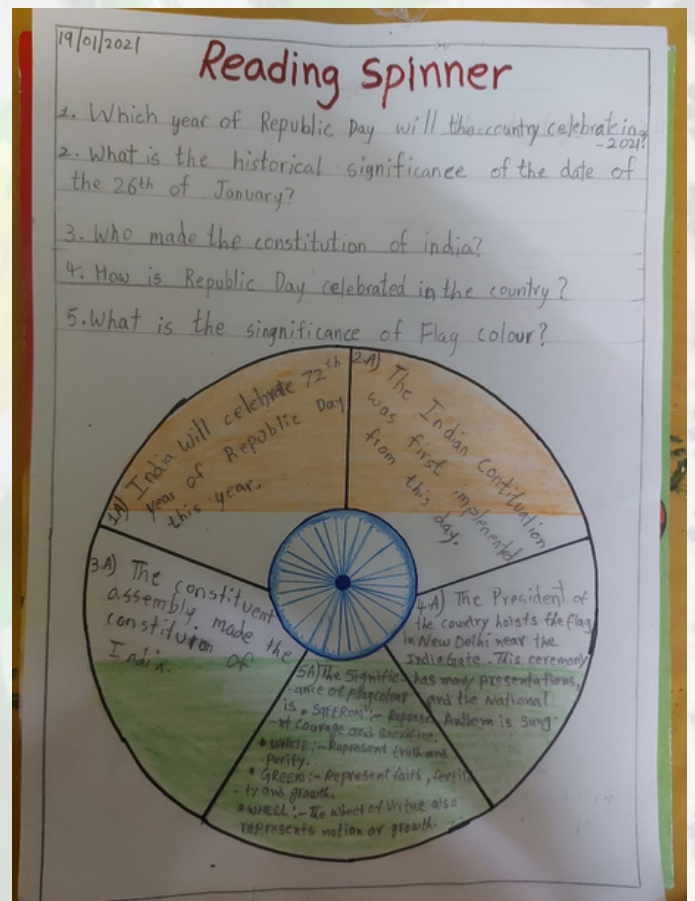 19/01/2021
Reading Spinner
1. Which year of Republic Day will the country celebrate in
-2021?
2. What is the historical significance of the date of
the 26th of January?
3. Who made the constitution of india?
4. How is Republic Day celebrated in the country?
5. What is the singnificance of Flag colour?
1A) India will celebrate 72th
year of Republic Day
this year.
2A) The Indian Contituation
was first implemented
from this day.
3.A) The constituent
assembly made the
constitution of
India.
4.A) The President of
the country hoists the flag
in New Delhi near the
India Gate. This ceremony
has many presentations,
and the National
Anthem is sung.
5A) The signific
-ance of flag colour
is • SAFFROM :- Represe
-nt courage and sacrifice.
• WHITE :- Represent truth and
Purity.
• GREEN :- Represent faith, fertili
-ty and growth.
• WHEEL :- The wheel of Virtue also
represents motion or growth.